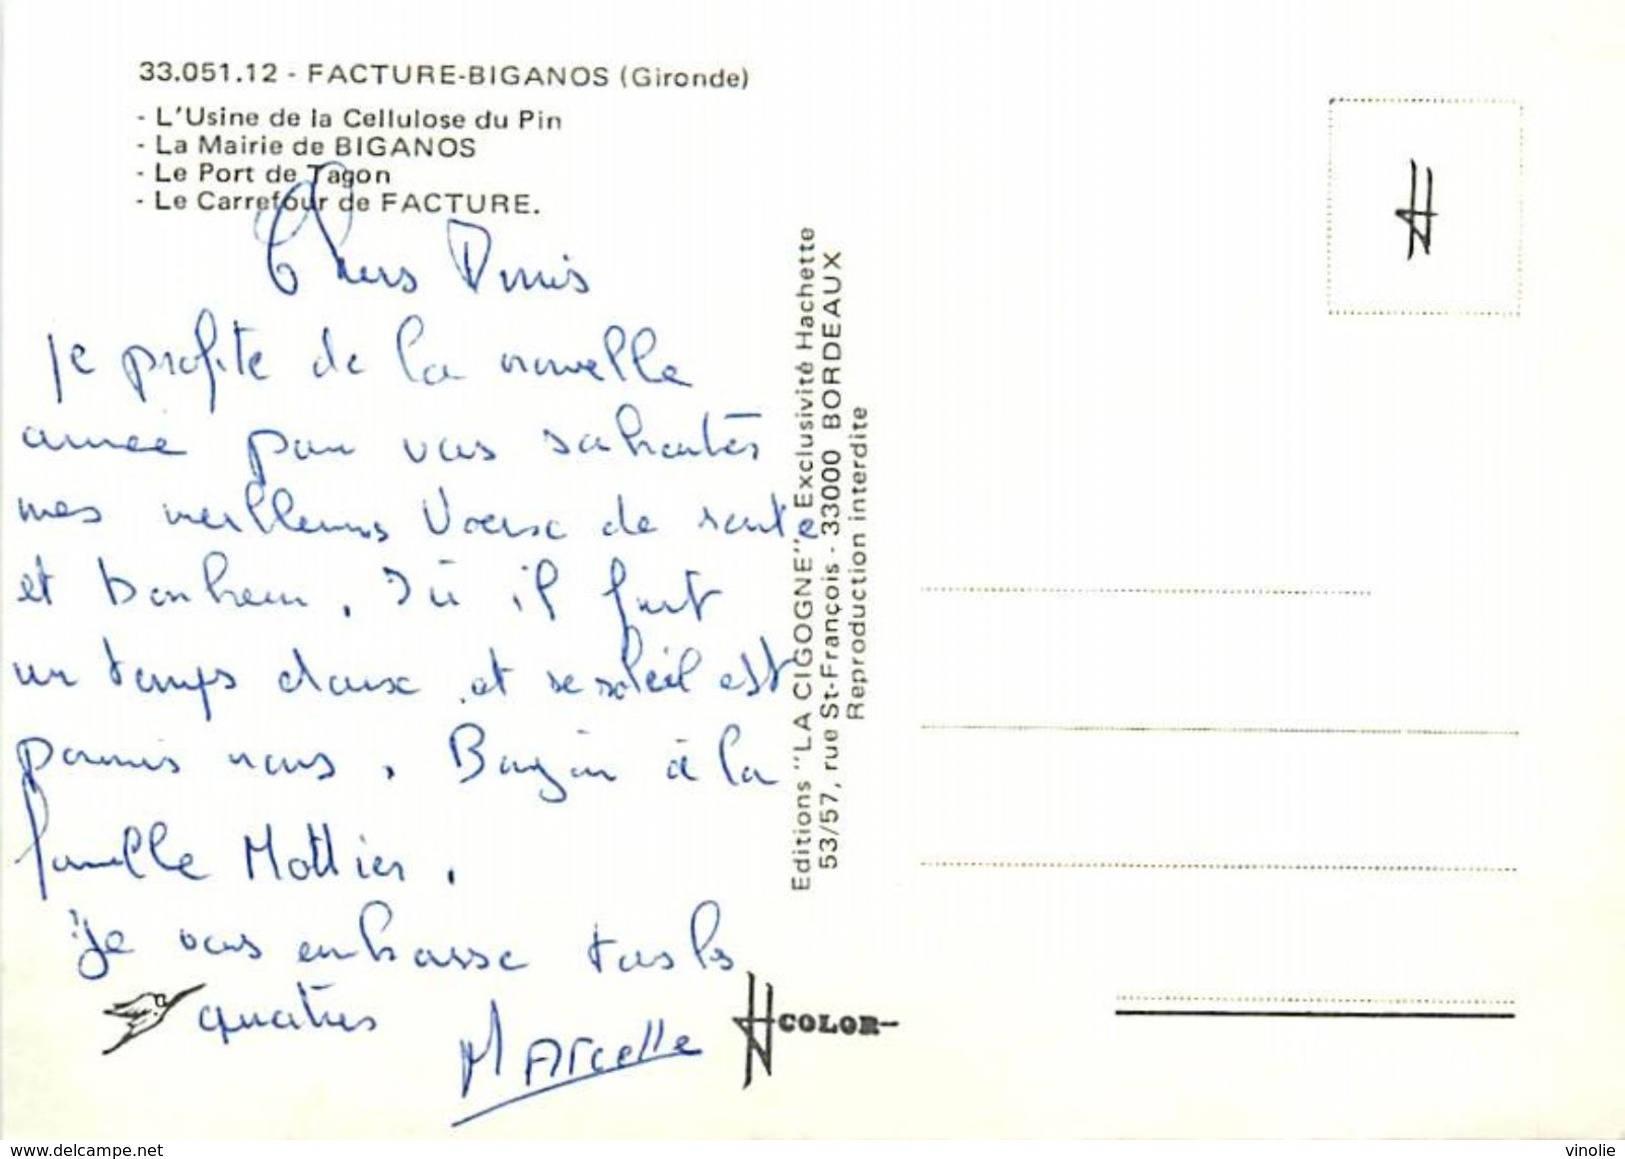 33.051.12 - FACTURE-BIGANOS (Gironde)
- L'Usine de la Cellulose du Pin
- La Mairie de BIGANOS
- Le Port de Tagon
- Le Carrefour de FACTURE.
Chers Amis
je profite de la nouvelle
année pour vous souhaités
mes meilleurs Voeux de santé
et bonheur. Ici il fait
un temps doux et le soleil est
parmis nous. à la
famille Mottier.
Je vous embrasse tous les
quatres
MArcelle
Editions "LA CIGOGNE" Exclusivité Hachette
53/57, rue St-François - 33000 BORDEAUX
Reproduction interdite
COLOR
delcampe.net
vinolie